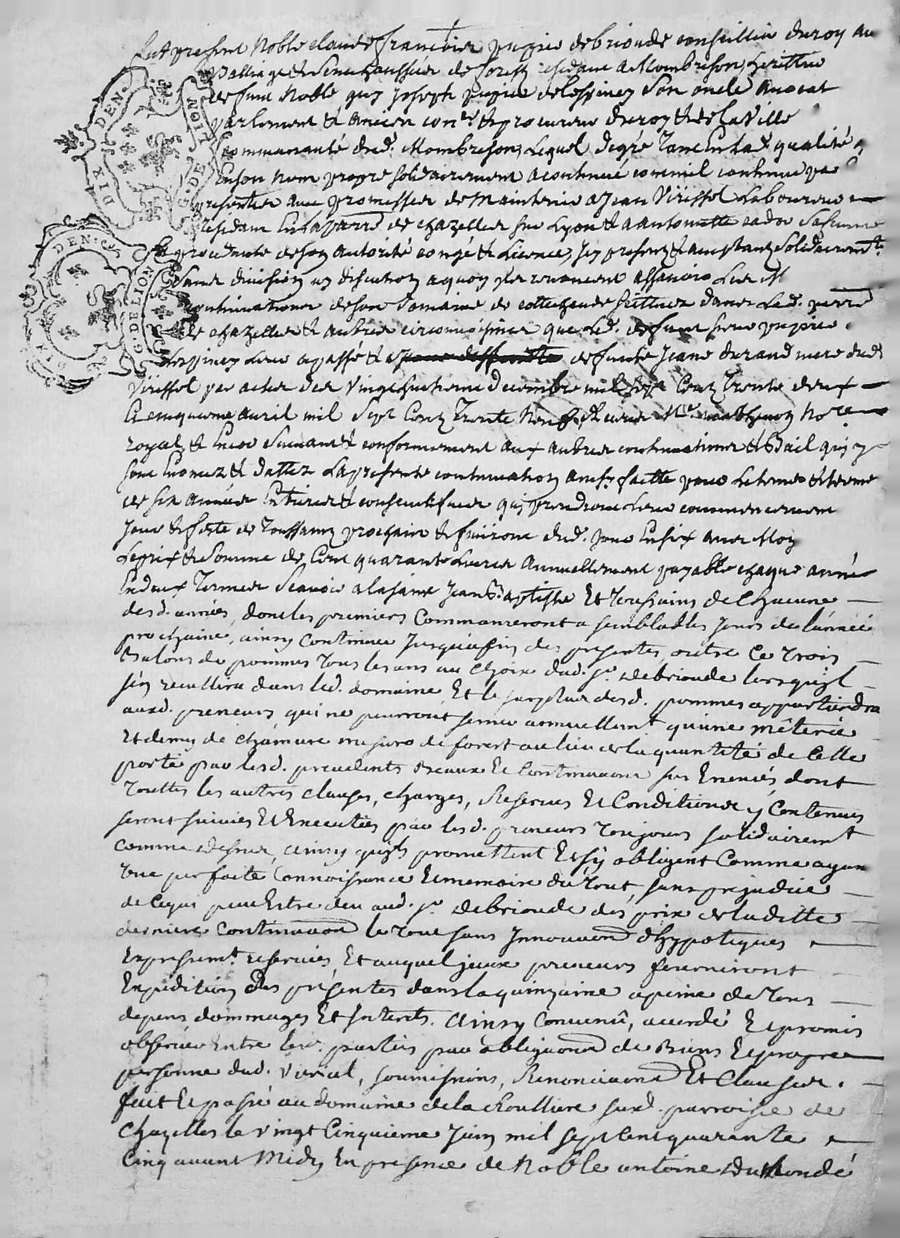 fut present Noble claude francois pupier de brioude conseillier du roy au
Balliage & Senechaussée de forest residant a Montbrison heritier
de feu Noble joseph pupier son oncle avocat
parlement & ancien procureur du roy & de la Ville
communauté dud. Montbrison, lequel de gré tant en lad. qualité q
En son nom propre solidairement a continué comme il continue par
presentes avec promesses de maintenir a jean Virissel Laboureur
residant En la parr. de chazelles sur Lyon & a antoinette sa femme
de son autorité congé & Licence, icy presents & acceptants solidairement
Sans division ny discution a quoy ils renoncent assavoir
continuation de son Domaine de scittué dans lad. parr.
de chazelles & autres circonvoisines que led. deffunt sieur pupier
Leur a passé & de funte Jeane durand mere dud.
Virissel par actes des vingt huitieme decembre mil sept Cent Trente deux
& cinquieme avril mil Sept Cent Trente Neuf No.re
royal & Suivant & conformement aux autres continuations & Bail qui y
sont Enoncez & dattez La presente continuation ainsy faitte pour le tems & terme
de six années Entieres & consecutives qui prendront Leur commencement
jour & feste de Toussaint prochain & finiront dud. jour En six ans Moy
Le prix & Somme de Cent quarante Livres Annuellement payable chaque année
En deux Termes Scavoir a la saint Jean Baptiste Et Toussains de Chacune
desd. années, dont les premiers Commanceront a semblables Jours de l'année
prochaine, ainsy continuer Jusqu'a fin des presentes, outre Ce trois
de pommes tous les ans au Choix dud. Sr. debrioude lorsquil
s'en recuillira dans led. domaine Et le surplus desd. pommes appartiendra
auxd. preneurs, qui ne pourront semer annuellement qu'une mêterée
Et demy de chanvre mesure de forest au lieu de la quantité de Celle
porté par lesd. precedents Beaux Et Continuations sus Enoncés dont
Touttes les autres clauses, charges, Reserves Et Conditions y Contenues
seront suivies Et Executées par lesd. preneurs toujours solidairement
Comme dessus, ainsy quils promettent Et s'y obligent Comme ayant
une parfaite Connoissance Et memoire du tout, sans prejudice
de Ce qui peut Estre deu aud. Sr. debrioude des prix de laditte
derniere Continuation le tout sans Innovation d'hypoteques
Expressement reservées Et auquel sieur preneurs fourniront
Expedition des présentes dans la quinzaine a peine de tous
depens dommages Et Interets. Ainsy Convenû, accordé Et promis
observer Entre lesd. parties par obligations de Biens Et propre
personne dud. Viricel, soumissions, Renonciations Et Clauses.
fait Et passé au domaine de la susd. parroisse de
Chazelles le vingt Cinquieme Juin mil sept Cent quarante
Cinq avant Midy En presence de Noble antoine
G. DE LION
DIX DEN.
DEN
G. DE LION